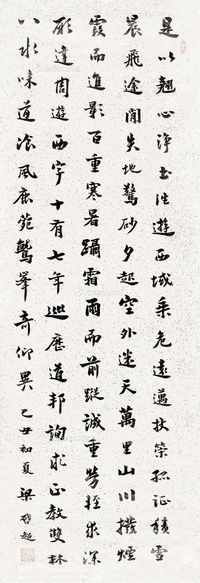 是以翹心淨土往遊西域乘危遠邁杖策孤征積雪
晨飛途間失地驚砂夕起空外迷天萬里山川撥煙
霞而進影百重寒暑躡霜雨而前蹤誠重勞輕求深
願達周遊西宇十有七年巡歷道邦詢求正教雙林
八水味道飡風鹿苑鷲峯奇仰異 己丑初夏 梁啓超